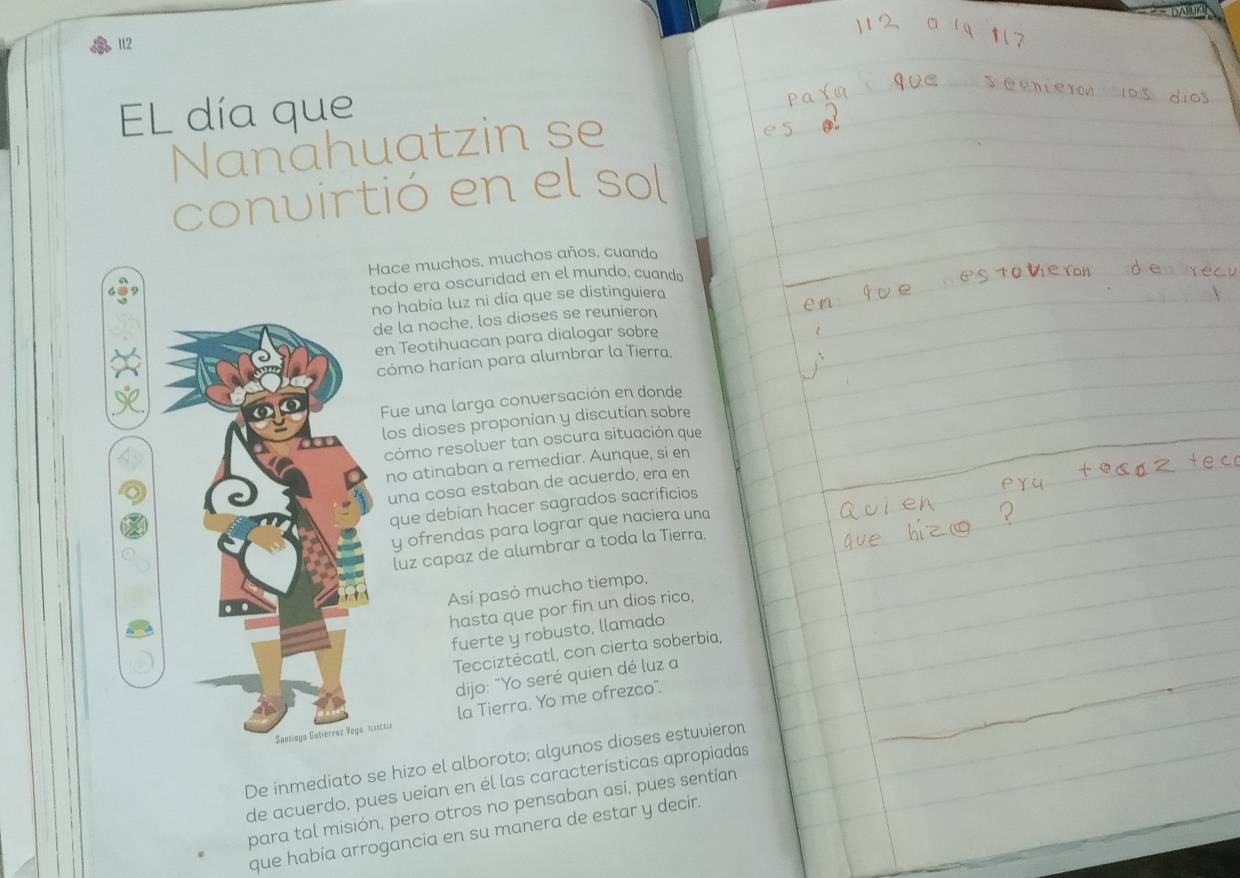 112
EL día que
Nanahuatzin se
convirtió en el sol
Hace muchos, muchos años, cuando
todo era oscuridad en el mundo, cuando
no había luz ni día que se distinguiera
de la noche, los dioses se reunieron
en Teotihuacan para dialogar sobre
cómo harían para alumbrar la Tierra.
Fue una larga conversación en donde
los dioses proponían y discutían sobre
cómo resolver tan oscura situación que
no atinaban a remediar. Aunque, si en
una cosa estaban de acuerdo, era en
que debían hacer sagrados sacrificios
y ofrendas para lograr que naciera una
luz capaz de alumbrar a toda la Tierra.
Así pasó mucho tiempo,
hasta que por fin un dios rico,
fuerte y robusto, llamado
Tecciztécatl, con cierta soberbia,
dijo: "Yo seré quien dé luz a
la Tierra. Yo me ofrezco".
Santiago Gutiérrez Vega. TLAXCALA
De inmediato se hizo el alboroto; algunos dioses estuvieron
de acuerdo, pues veían en él las características apropiadas
para tal misión, pero otros no pensaban así, pues sentían
que había arrogancia en su manera de estar y decir.
112 a la 117
para que seonieron los dios
es ?
en que estovieron de
Quien era
que hizo ?